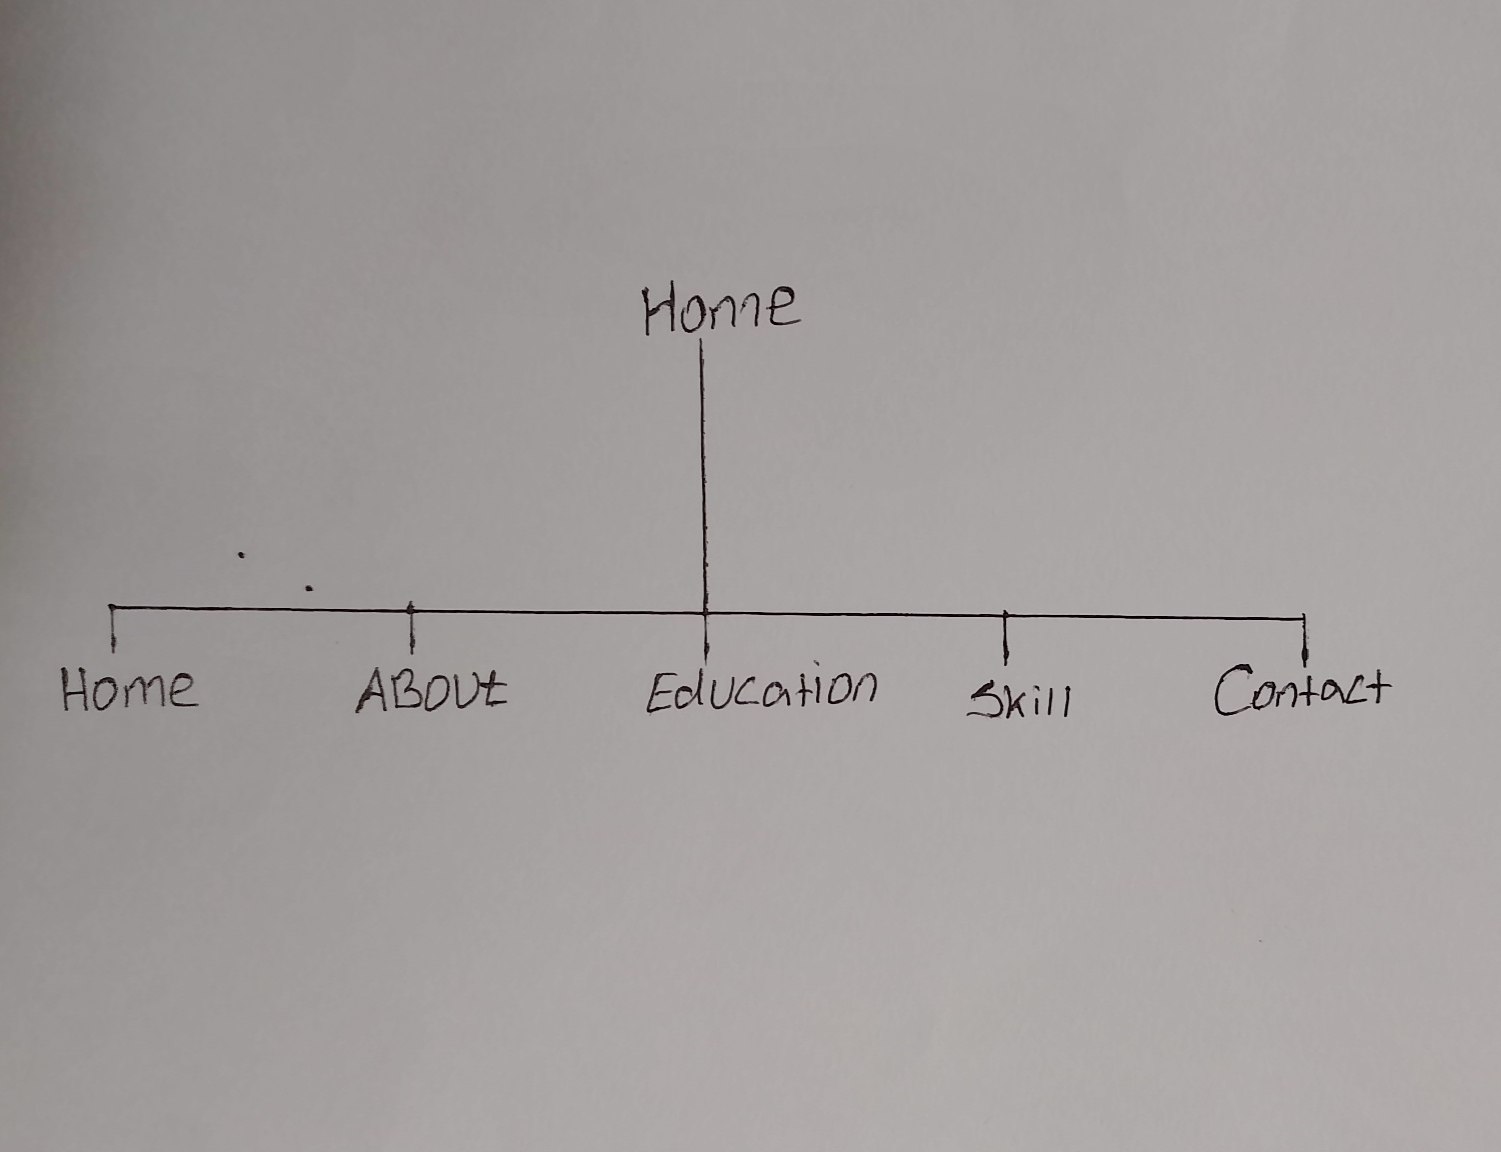 Home
Home ABOUt Education Skill Contact